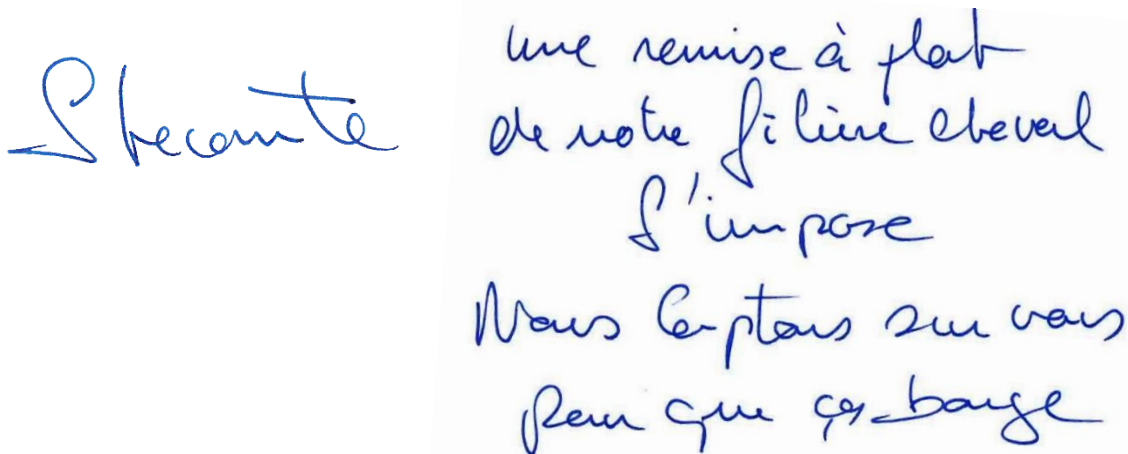 SLecomte
une remise à plat
de notre filière cheval
s'impose
Nous comptons sur vous
pour que ça bouge